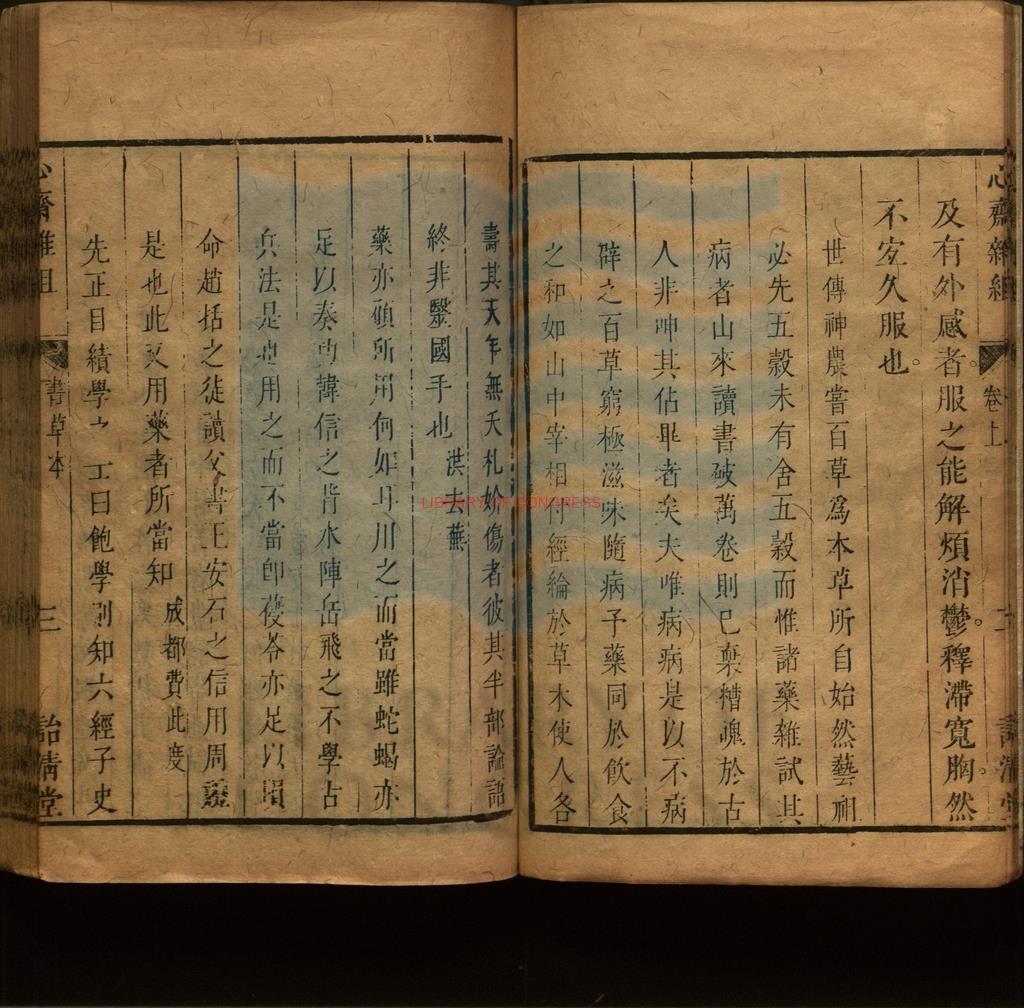 心齋雜組 卷上 二 詒清堂
及有外感者服之能解煩消鬱釋滯寬胸然
不宐久服也
世傳神農嘗百草爲本草所自始然藝祖
必先五穀未有舍五穀而惟諸藥雜試其
病者山來讀書破萬卷則已棄糟魂於古
人非呻其佔畢者矣夫唯病病是以不病
辟之百草窮極滋味隨病予藥同於飲食
之和如山中宰相行經綸於草木使人各
壽其天年無夭札始傷者彼其半部論語
終非醫國手也 洪去蕪
藥亦顧所用何如耳用之而當雖蛇蝎亦
足以奏功韓信之背水陣岳飛之不學古
兵法是也用之而不當卽葠苓亦足以隕
命趙括之徒讀父書王安石之信用周禮
是也此又用藥者所當知 成都費此度
先正目績學之 士曰飽學則知六經子史
心齋雜俎 書草本 三 詒清堂
LIBRARY OF CONGRESS